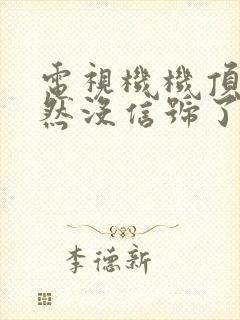 電視機機頂
然沒信號了
李德新